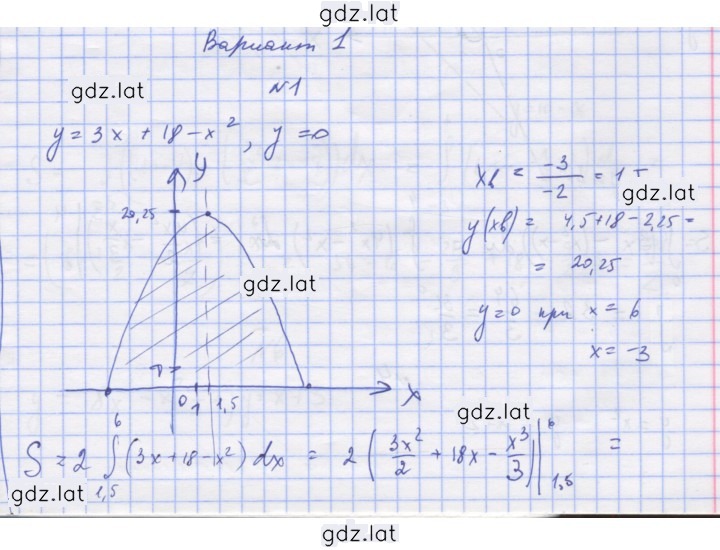 gdz.lat
Вариант 1
gdz.lat
№1
y = 3x + 18 - x², y = 0
y
20,25
xв = -3/-2 = 1,5
gdz.lat
y(xв) = 4,5 + 18 - 2,25 =
= 20,25
gdz.lat
y = 0 при x = 6
x = -3
0 1 1,5 x
gdz.lat
S = 2 ∫_{1,5}^{6} (3x + 18 - x²) dx = 2 (3x²/2 + 18x - x³/3)|_{1,5}^{6} =
gdz.lat
gdz.lat